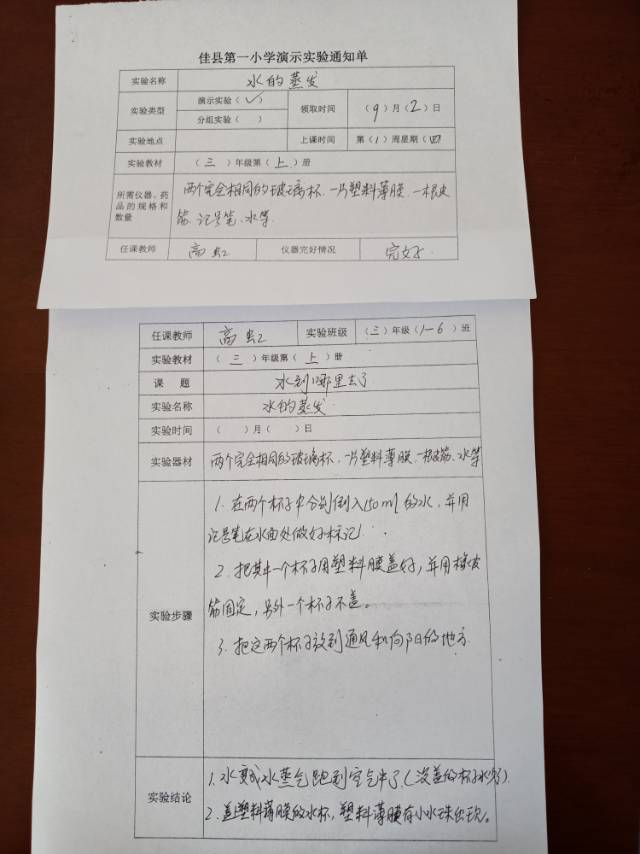 佳县第一小学演示实验通知单
实验名称 水的蒸发
实验类型 演示实验（✓） 领取时间 （9）月（2）日
分组实验（ ）
实验地点 上课时间 第（1）周星期（四
实验教材 （三）年级第（上）册
所需仪器、药品的规格和数量 两个完全相同的玻璃杯、一片塑料薄膜、一根皮
筋、记号笔、水等
任课教师 高虹 仪器完好情况 完好
任课教师 高虹 实验班级 （三）年级（1-6）班
实验教材 （三）年级第（上）册
课 题 水到哪里去了
实验名称 水的蒸发
实验时间 （ ）月（ ）日
实验器材 两个完全相同的玻璃杯、一片塑料薄膜、一根皮筋、水等
实验步骤
1. 在两个杯子中分别倒入150ml的水，并用
记号笔在水面处做好标记
2. 把其中一个杯子用塑料膜盖好，并用橡皮
筋固定，另外一个杯子不盖。
3. 把这两个杯子放到通风和向阳的地方
实验结论
1. 水变成水蒸气跑到空气中了（没盖的杯子水少）
2. 盖塑料薄膜的水杯，塑料薄膜有小水珠出现。